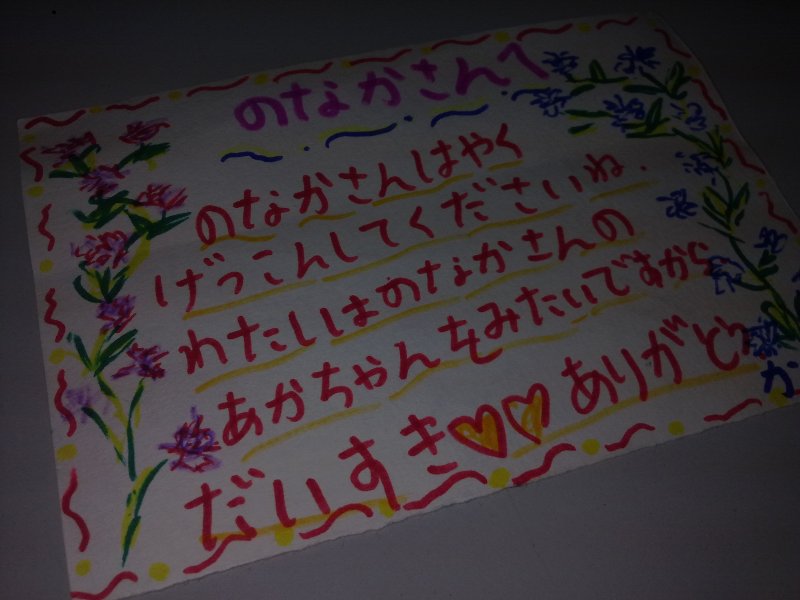 のなかさんへ
のなかさんはやく
げっこんしてくださいね.
わたしはのなかさんの
あかちゃんをみたいですから
ありがとう
だいすき♡♡
か